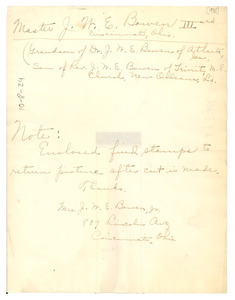 Master J. W. E. Bowen III
Cincinnati, Ohio.
(Grandson of Dr. J. W. E. Bowen of Atlanta,
Ga.
Son of Rev. J. W. E. Bowen of Trinity M. E.
Church, New Orleans, La.
10-8-24
Note:
Enclosed find stamps to
return picture after cut is made.
Thanks.
Mrs. J. W. E. Bowen, Jr.
Lincoln Ave
Cincinnati, Ohio